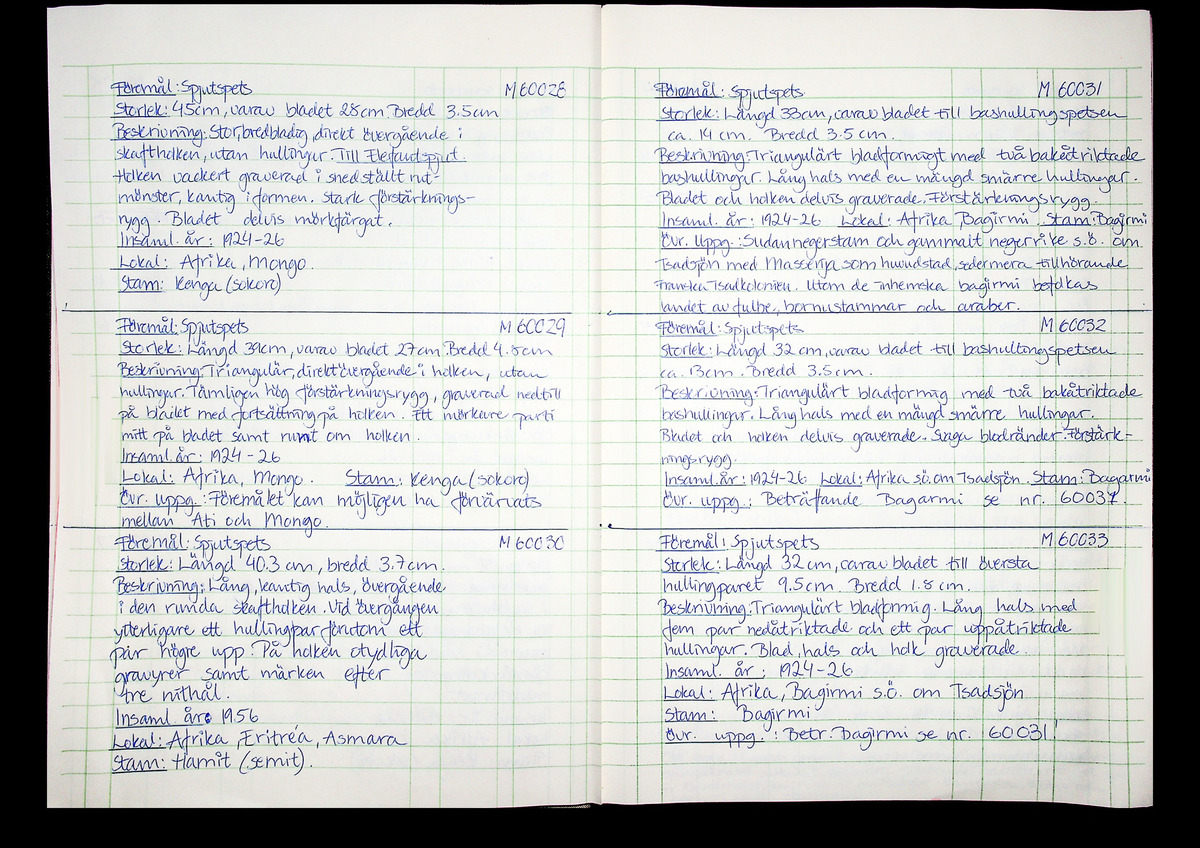 Föremål: Spjutspets M 60028
Storlek: 45cm, varav bladet 28cm. Bredd 3.5cm
Beskrivning: Stor, bredbladig, direkt övergående i
skaftholken, utan hullingar. Till Elefantspjut.
Holken vackert graverad i snedställt rut-
mönster, kantig i formen. Stark förstärknings-
rygg. Bladet delvis mörkfärgat.
Insaml. år: 1924-26
Lokal: Afrika, Mongo.
Stam: Kenga (sokoro)
Föremål: Spjutspets M 60029
Storlek: Längd 39cm, varav bladet 27cm. Bredd 4.8cm
Beskrivning: Triangulär, direkt övergående i holken, utan
hullingar. Tämligen hög förstärkningsrygg, graverad nedtill
på bladet med fortsättning på holken. Ett mörkare parti
mitt på bladet samt runt om holken.
Insaml. år: 1924-26
Lokal: Afrika, Mongo. Stam: Kenga (sokoro)
Övr. uppg.: Föremålet kan möjligen ha förvärvats
mellan Ati och Mongo.
Föremål: Spjutspets M 60030
Storlek: Längd 40.3 cm, bredd 3.7cm.
Beskrivning: Lång, kantig hals, övergående
i den runda skaftholken. Vid övergången
ytterligare ett hullingpar förutom ett
par högre upp. På holken otydliga
gravyrer samt märken efter
tre nithål.
Insaml. år: 1956
Lokal: Afrika, Eritréa, Asmara
Stam: Hamit (semit).
Föremål: Spjutspets M 60031
Storlek: Längd 33cm, varav bladet till bashullingspetsen
ca. 14 cm. Bredd 3.5 cm.
Beskrivning: Triangulärt bladformigt med två bakåtriktade
bashullingar. Lång hals med en mängd smärre hullingar.
Bladet och holken delvis graverade. Förstärkningsrygg.
Insaml. år: 1924-26 Lokal: Afrika, Bagirmi. Stam: Bagirmi
Övr. uppg.: Sudannegerstam och gammalt negerrike s.ö. om
Tsadsjön med Massenja som huvudstad, sedermera tillhörande
Franska Tsadkolonien. Utom de inhemska bagirmi befolkas
landet av fulbe, bornustammar och araber.
Föremål: Spjutspets M 60032
Storlek: Längd 32 cm, varav bladet till bashullingspetsen
ca. 13cm. Bredd 3.5cm.
Beskrivning: Triangulärt bladformig med två bakåtriktade
bashullingar. Lång hals med en mängd smärre hullingar.
Bladet och holken delvis graverade. Svaga blodränder. Förstärk-
ningsrygg.
Insaml. år: 1924-26 Lokal: Afrika sö. om Tsadsjön. Stam: Bagarmi
Övr. uppg.: Beträffande Bagarmi se nr. 60031
Föremål: Spjutspets M 60033
Storlek: Längd 32 cm, varav bladet till översta
hullingparet 9.5cm. Bredd 1.8 cm.
Beskrivning: Triangulärt bladformig. Lång hals med
fem par nedåtriktade och ett par uppåtriktade
hullingar. Blad, hals och holk graverade.
Insaml. år: 1924-26
Lokal: Afrika, Bagirmi s.ö. om Tsadsjön
Stam: Bagirmi
Övr. uppg.: Betr. Bagirmi se nr. 60031!